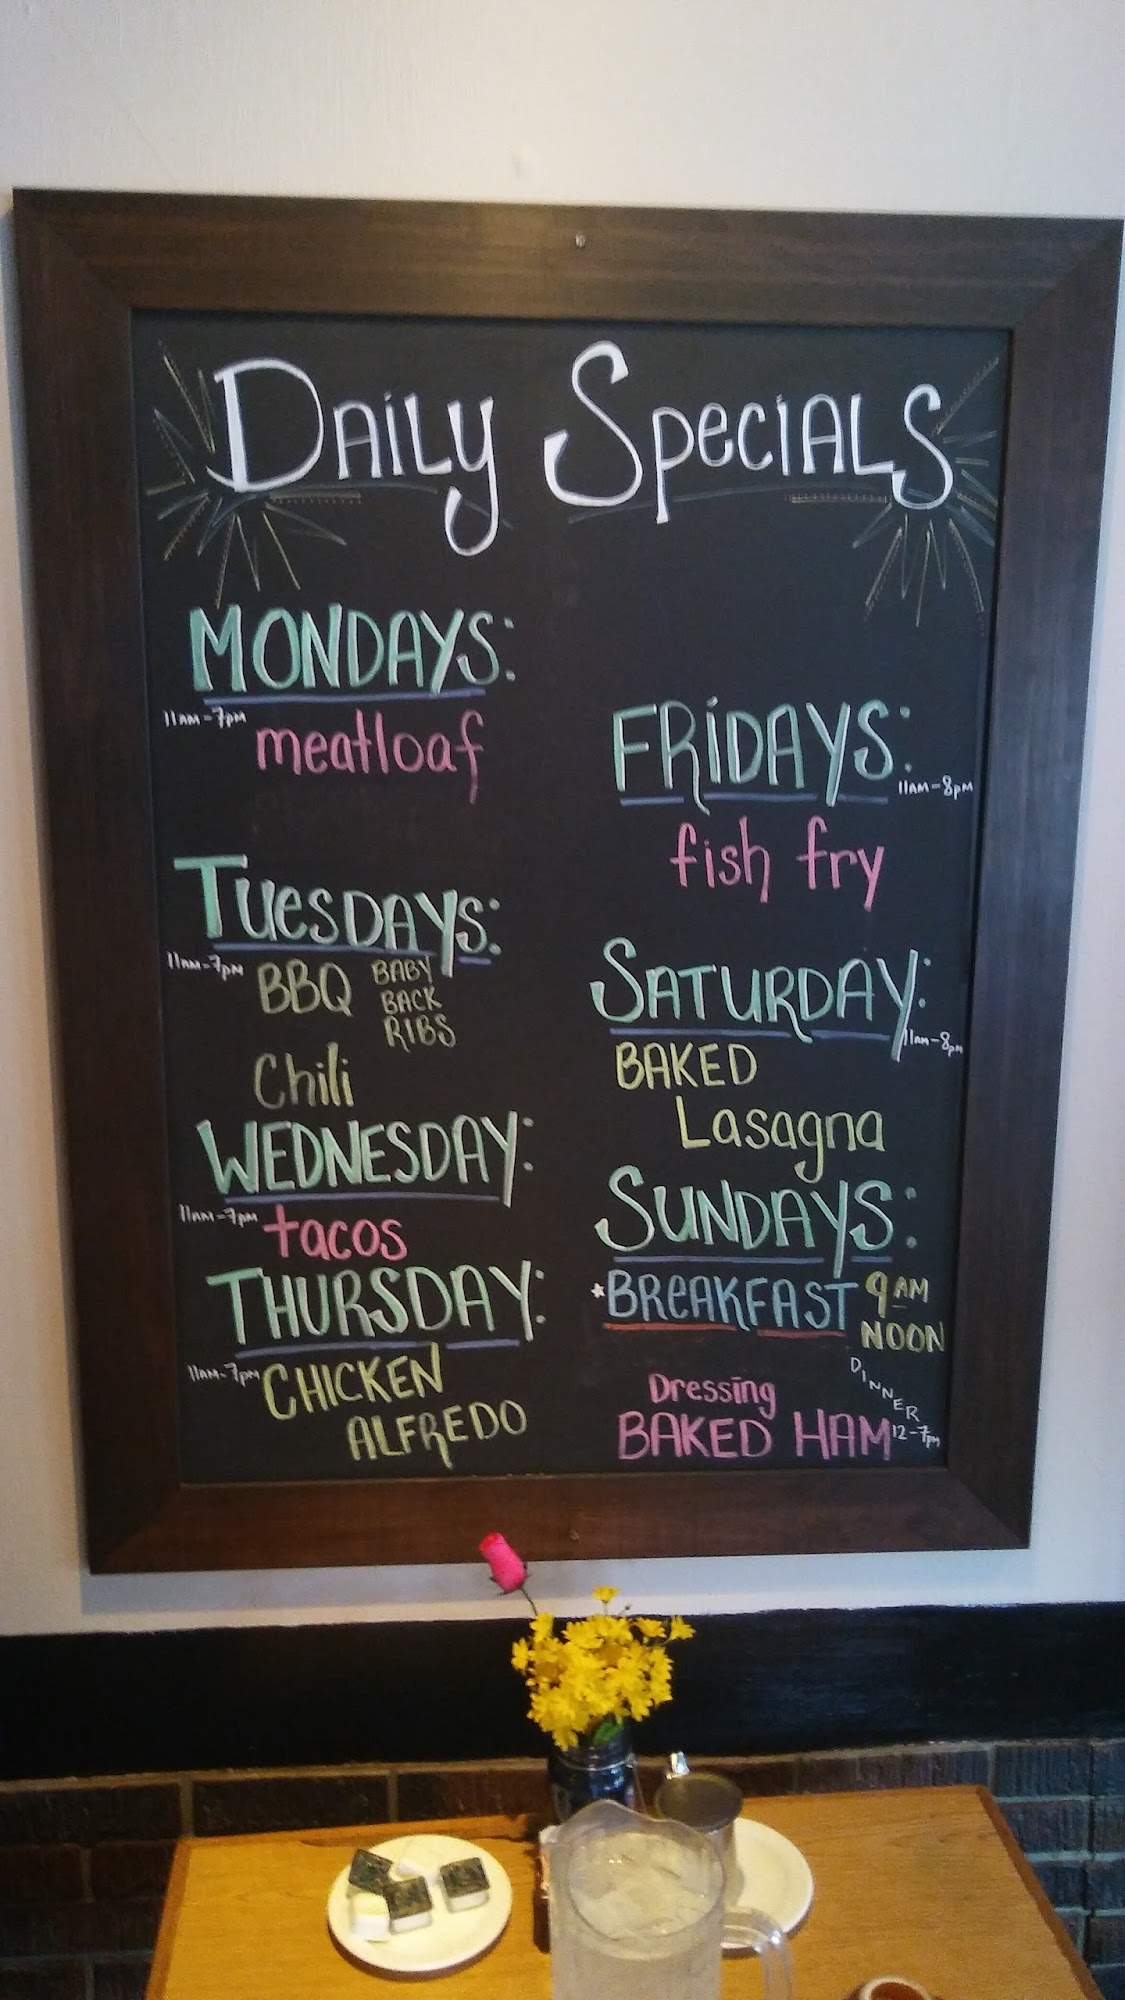 Daily Specials
MONDAYS:
11AM-7pm
meatloaf
TUesDAYs:
11AM-7pm
BBQ BABY
BACK
RIBS
Chili
WEDNESDAY:
11AM-7pm
tacos
THURSDAY:
11AM-7pm
CHICKEN
ALFREDO
FRiDAYS:
11AM-8pm
fish fry
SATURDAY:
11am-8pm
BAKED
Lasagna
SUNDAYS:
*BReAKFAST 9AM
NOON
DINNER
12-7pm
Dressing
BAKED HAM